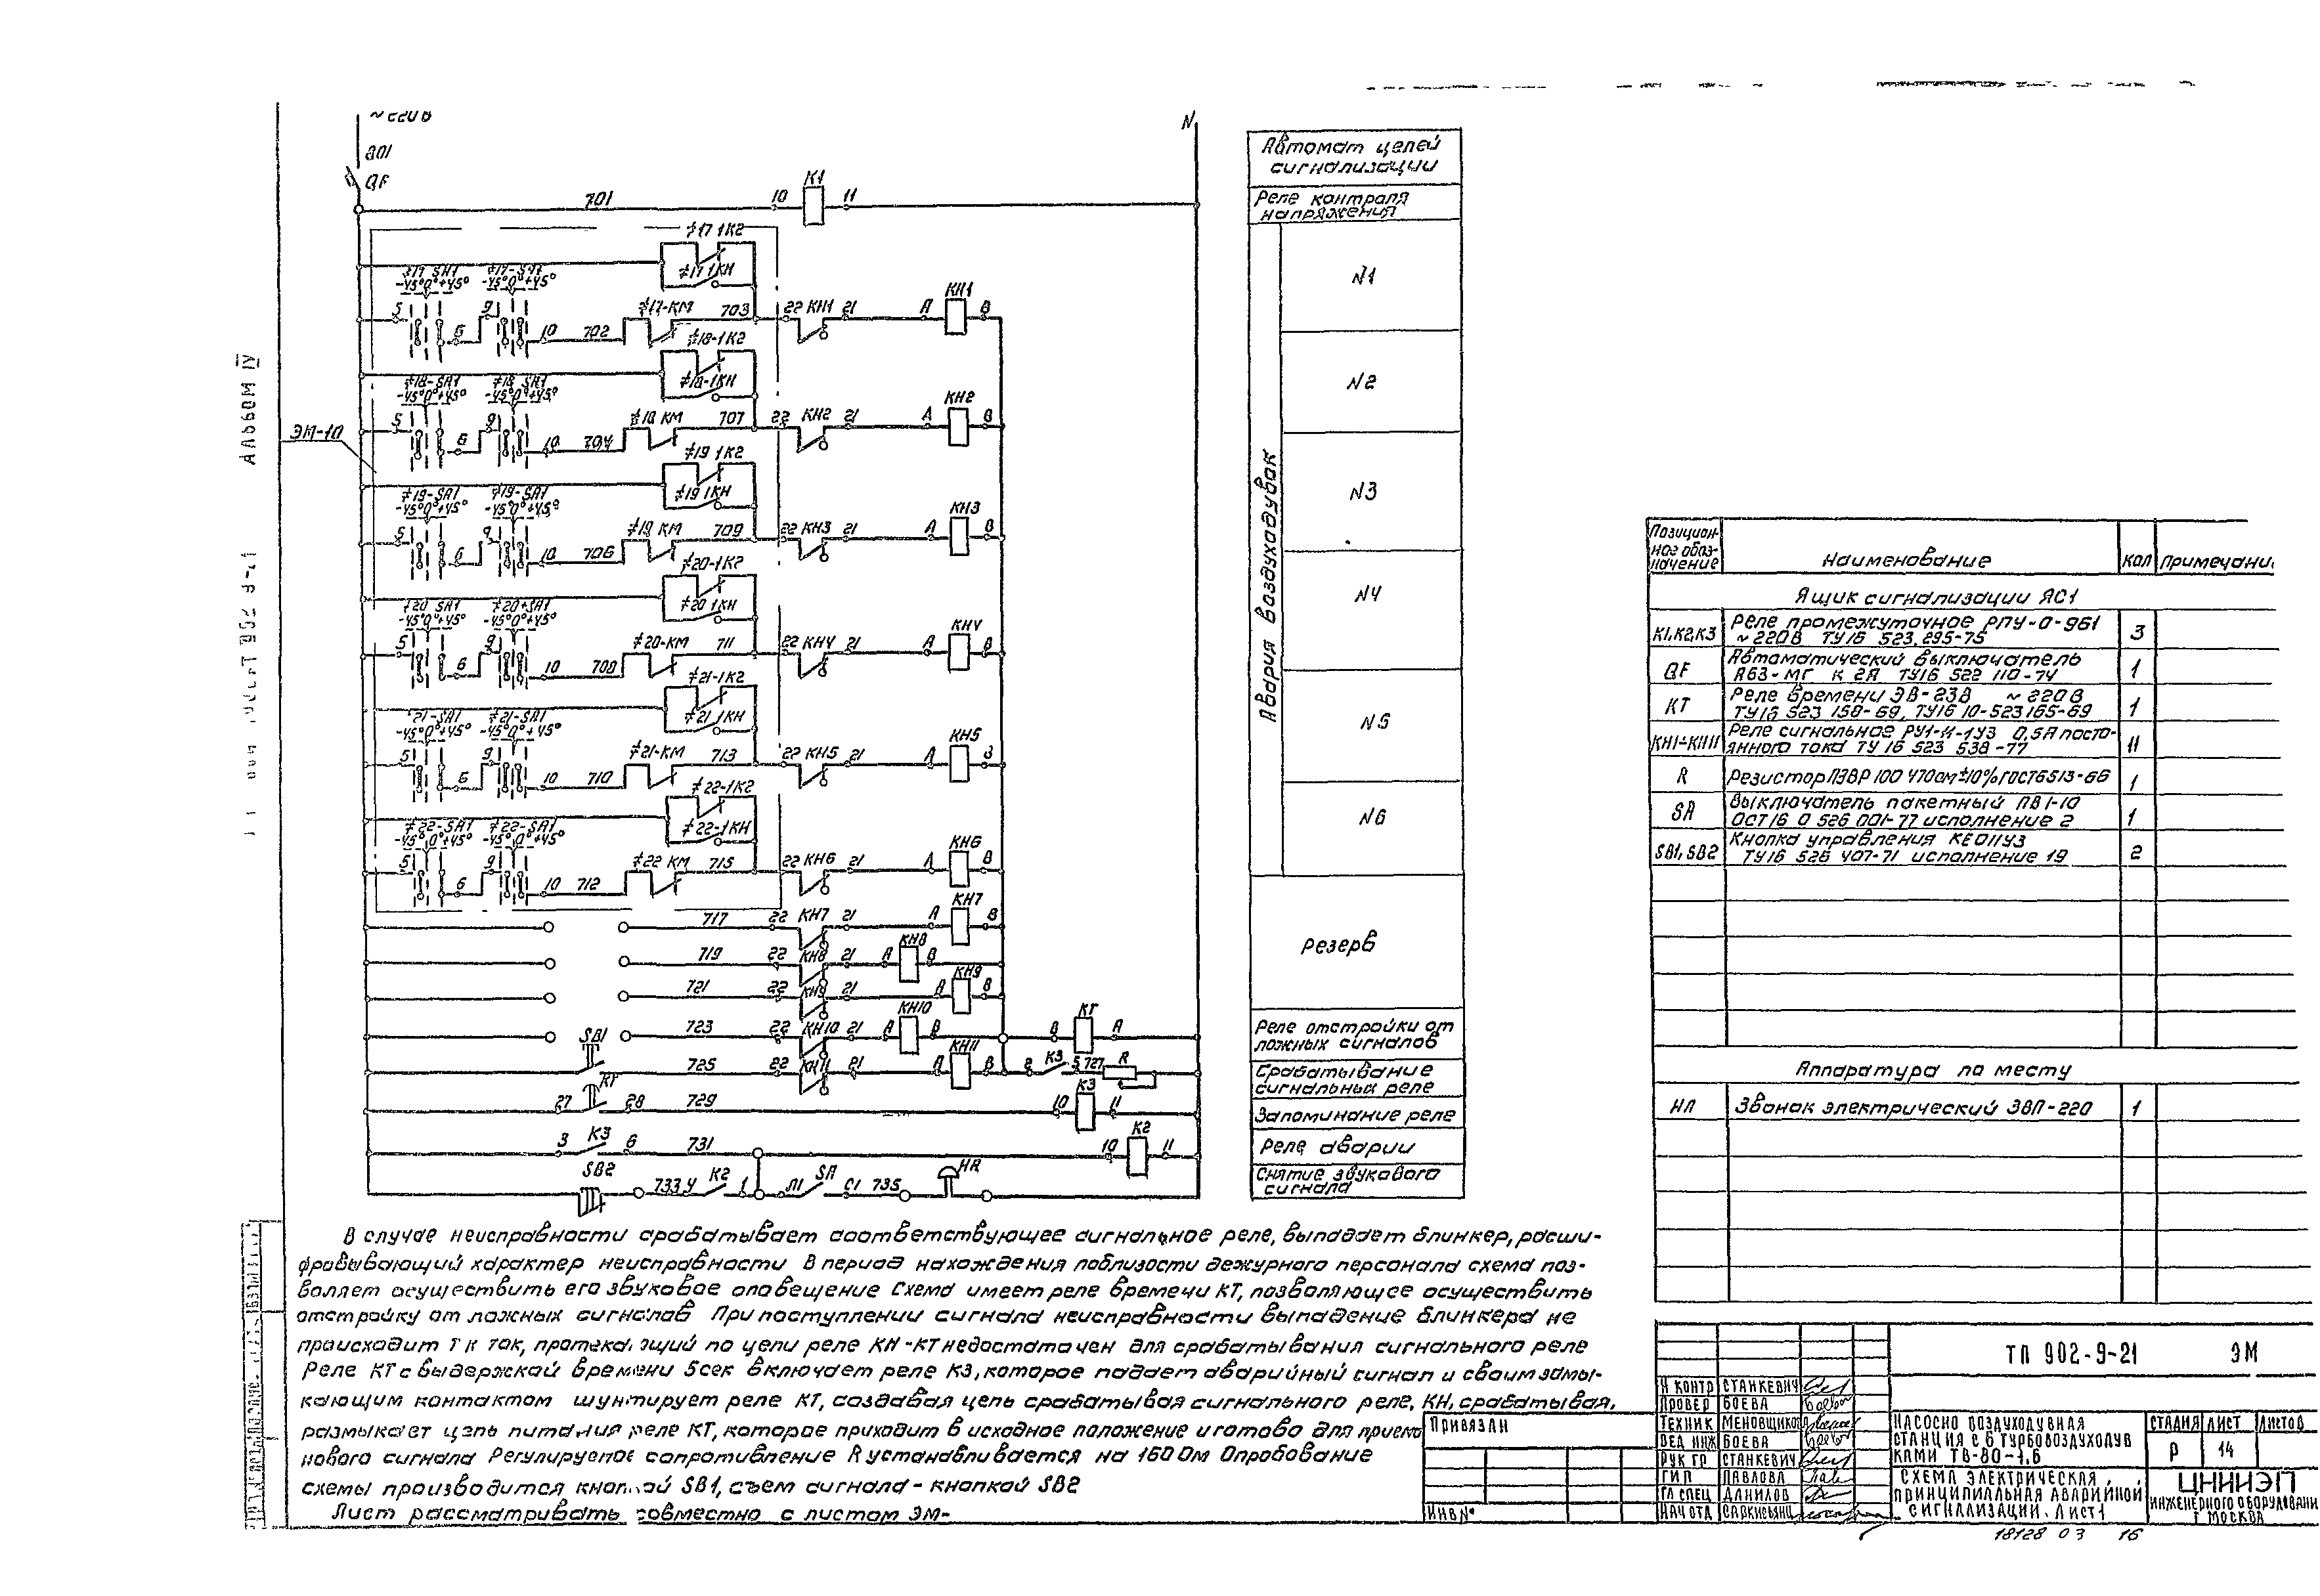 801
QF
N
701
10
K1
11
Автомат цепей
сигнализации
Реле контроля
напряжения
Авария воздуходувок
N1
N2
N3
N4
N5
N6
Резерв
Реле отстройки от
ложных сигналов
Срабатывание
сигнальных реле
Запоминание реле
Реле аварии
Снятие звукового
сигнала
АЛЬБОМ IV
ЭМ-10
≠17 1К2
≠17 1КН
≠17 SA1
-45° 0° +45° -45° 0° +45°
5 6 9 10 702 ≠17-КМ 703 22 КН1 21 А КН1 В
≠18-1К2
≠18-1КН
≠18-SA1 ≠18 SA1
-45° 0° +45° -45° 0° +45°
5 6 9 10 704 ≠18 КМ 707 22 КН2 21 А КН2 В
≠19 1К2
≠19 1КН
≠19-SA1 ≠19-SA1
-45° 0° +45° -45° 0° +45°
5 6 9 10 706 ≠19 КМ 709 22 КН3 21 А КН3 В
≠20-1К2
≠20 1КН
≠20 SA1 ≠20-SA1
-45° 0° +45° -45° 0° +45°
5 6 9 10 708 ≠20-КМ 711 22 КН4 21 А КН4 В
≠21-1К2
≠21 1КН
≠21-SA1 ≠21-SA1
-45° 0° +45° -45° 0° +45°
5 6 9 10 710 ≠21-КМ 713 22 КН5 21 А КН5 В
≠22-1К2
≠22-1КН
≠22-SA1 ≠22-SA1
-45° 0° +45° -45° 0° +45°
5 6 9 10 712 ≠22 КМ 715 22 КН6 21 А КН6 В
717 22 КН7 21 А КН7 В
719 22 КН8 21 А КН8 В
721 22 КН9 21 А КН9 В
723 22 КН10 21 А КН10 В В КТ А
SB1 725 22 КН11 21 А КН11 В 2 К3 5 727 R
27 КТ 28 729 10 К3 11
3 К3 6 731 10 К2 11
SB2 733 4 К2 1 Л1 SA С1 735 НА
Позицион-
ное обоз-
начение
Наименование
Кол
Примечани
Ящик сигнализации ЯС1
К1,К2,К3 Реле промежуточное РПУ-0-961 3
~220В ТУ16 523.295-75
QF Автоматический выключатель 1
А63-МГ К 2А ТУ16 522 110-74
КТ Реле времени ЭВ-238 ~220В 1
ТУ16 523 158-69, ТУ16 10-523165-69
КН1÷КН11 Реле сигнальное РУ1-11-1У3 0,5А посто- 11
янного тока ТУ 16 523 538-77
R Резистор ПЭВР 100 470ом ±10% ГОСТ6513-66 1
SA Выключатель пакетный ПВ1-10 1
ОСТ16 0 526 001-77 исполнение 2
SB1, SB2 Кнопка управления КЕ011У3 2
ТУ16 526 407-71 исполнение 19
Аппаратура по месту
НА Звонок электрический ЗВП-220 1
В случае неисправности срабатывает соответствующее сигнальное реле, выпадает блинкер, расши-
фровывающий характер неисправности В период нахождения поблизости дежурного персонала схема поз-
воляет осуществить его звуковое оповещение Схема имеет реле времени КТ, позволяющее осуществить
отстройку от ложных сигналов При поступлении сигнала неисправности выпадение блинкера не
происходит т к ток, протекающий по цепи реле КН-КТ недостаточен для срабатывания сигнального реле
Реле КТ с выдержкой времени 5сек включает реле К3, которое подает аварийный сигнал и своим замы-
кающим контактом шунтирует реле КТ, создавая цепь срабатывая сигнального реле, КН, срабатывая,
размыкает цепь питания реле КТ, которое приходит в исходное положение и готово для приема
нового сигнала Регулируемое сопротивление R устанавливается на 160 Ом Опробование
схемы производится кнопкой SB1, съем сигнала - кнопкой SB2
Лист рассматривать совместно с листом ЭМ-
ПРИВЯЗАН
ИНВ N°
ТП 902-9-21 ЭМ
Н КОНТР СТАНКЕВИЧ
ПРОВЕР БОЕВА
ТЕХНИК МЕНОВЩИКОВ
ВЕД ИНЖ БОЕВА
РУК ГР СТАНКЕВИЧ
ГИП ПАВЛОВА
ГЛ СПЕЦ ДАНИЛОВ
НАЧ ОТД
НАСОСНО ВОЗДУХОДУВНАЯ
СТАНЦИЯ С 6 ТУРБОВОЗДУХОДУВ
КАМИ ТВ-80-1,6
СТАДИЯ ЛИСТ ЛИСТОВ
Р 14
СХЕМА ЭЛЕКТРИЧЕСКАЯ
ПРИНЦИПИАЛЬНАЯ АВАРИЙНОЙ
СИГНАЛИЗАЦИИ. ЛИСТ1
ЦНИИЭП
ИНЖЕНЕРНОГО ОБОРУДОВАНИ
Г МОСКВА
18128 03 16